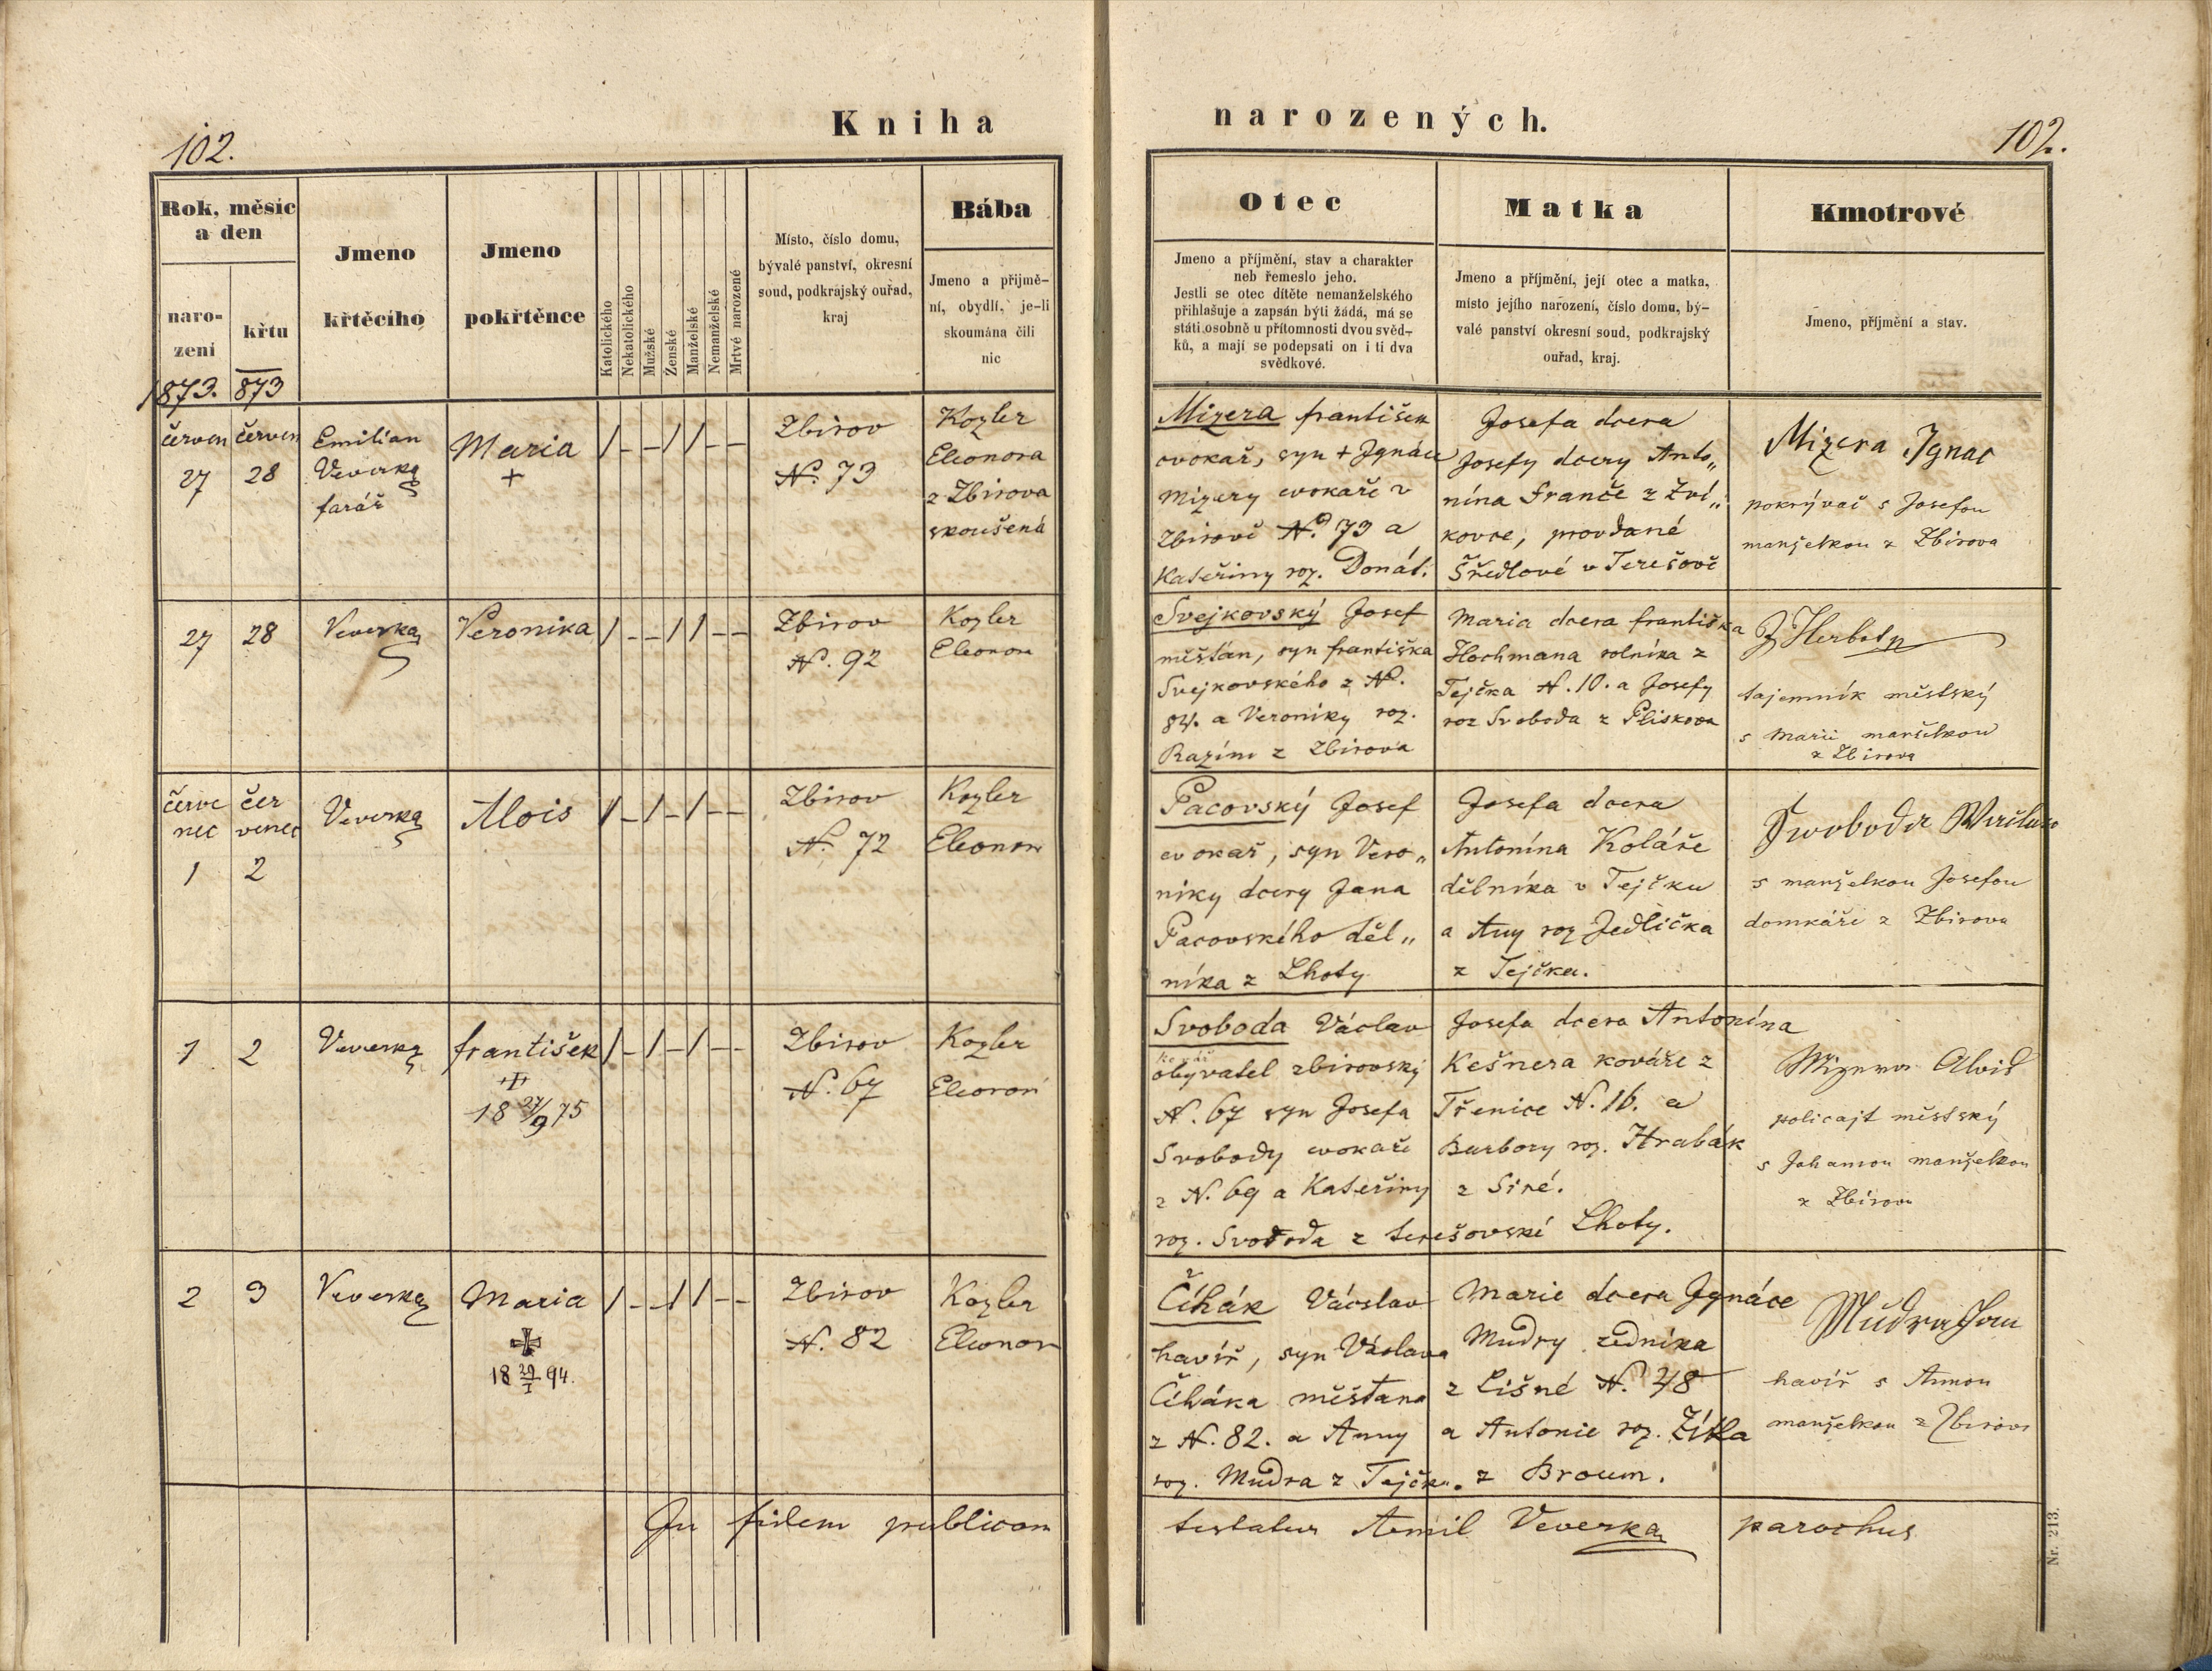 102.
Kniha
narozených.
102.
Rok, měsíc
a den
naro-
zení
křtu
Jmeno
křtěcího
Jmeno
pokřtěnce
Katolického
Nekatolického
Mužské
Ženské
Manželské
Nemanželské
Mrtvé narozené
Místo, číslo domu,
bývalé panství, okresní
soud, podkrajský ouřad,
kraj
Bába
Jmeno a přijmě-
ní, obydlí, je-li
skoumána čili
nic
Otec
Jmeno a příjmění, stav a charakter
neb řemeslo jeho.
Jestli se otec dítěte nemanželského
přihlašuje a zapsán býti žádá, má se
státi osobně u přítomnosti dvou svěd-
ků, a mají se podepsati on i ti dva
svědkové.
Matka
Jmeno a příjmění, její otec a matka,
místo jejího narození, číslo domu, bý-
valé panství okresní soud, podkrajský
ouřad, kraj.
Kmotrové
Jmeno, příjmění a stav.
1873. 873
červen
27
červen
28
Emilian
Veverka
farář
Maria
+
/ - - / / - -
Zbirov
No. 73
Kozler
Eleonora
z Zbirova
skoušená
Mizera františek
cvokař, syn + Ignáce
Mizery cvokaře v
Zbirově No. 73 a
Kateřiny roz. Donát.
Josefa dcera
Josefy dcery Anto„
nína Franče z Zví„
kovce, provdané
Šředlové v Terešově
Mizera Ignac
pokrývač s Josefou
manželkou z Zbirova
27
28
Veverka
Veronika
/ - - / / - -
Zbirov
N. 92
Kozler
Eleonora
Svejkovský Josef
měšťan, syn františka
Svejkovského z No.
84. a Veroniky roz.
Razím z Zbirova
Maria dcera františka
Hochmana rolníka z
Tejčka N. 10. a Josefy
roz Svoboda z Pliskova
tajemník městský
s Marií manželkou
z Zbirova
červe
nec
1
čer
venec
2
Veverka
Alois
/ - / - / - -
Zbirov
N. 72
Kozler
Eleonora
Pacovský Josef
cvokař, syn Vero„
niky dcery Jana
Pacovského děl„
níka z Lhoty
Josefa dcera
Antonína Koláře
dělníka v Tejčku
a Any roz Jedlička
z Tejčka.
Swoboda
s manželkou Josefou
domkáři z Zbirova
1
2
Veverka
františek
+
18 27/9 75
/ - / - / - -
Zbirov
N. 67
Kozler
Eleonora
Svoboda Václav
obyvatel zbirovský
N. 67 syn Josefa
Svobody cvokaře
z N. 69 a Kateřiny
roz. Svoboda z terešovské Lhoty.
Josefa dcera Antonína
Kešnera kováře z
Třenice N. 16. a
Barbory roz. Hrabák
z Siré.
Mizera Alois
policajt městský
s Johanou manželkou
z Zbirova
2
3
Veverka
Maria
✠
18 29/I 94.
/ - - / / - -
Zbirov
N. 82
Kozler
Eleonora
Čihák Václav
havíř, syn Václava
Čiháka měšťana
z N. 82. a Anny
roz. Mudra z Tejčk.
Marie dcera Ignáce
Mudry zedníka
z Lišné N. 48
a Antonie roz. Zítka
z Broum.
Mudra Jan
havíř s Annou
manželkou z Zbirova
In fidem publicam
testatur Aemil Veverka parochus
Nr. 213.